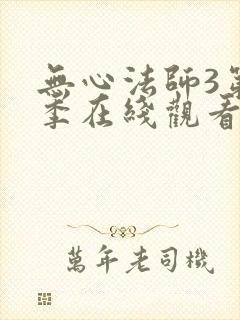 無心法師3第
季在綫觀看
萬年老司機